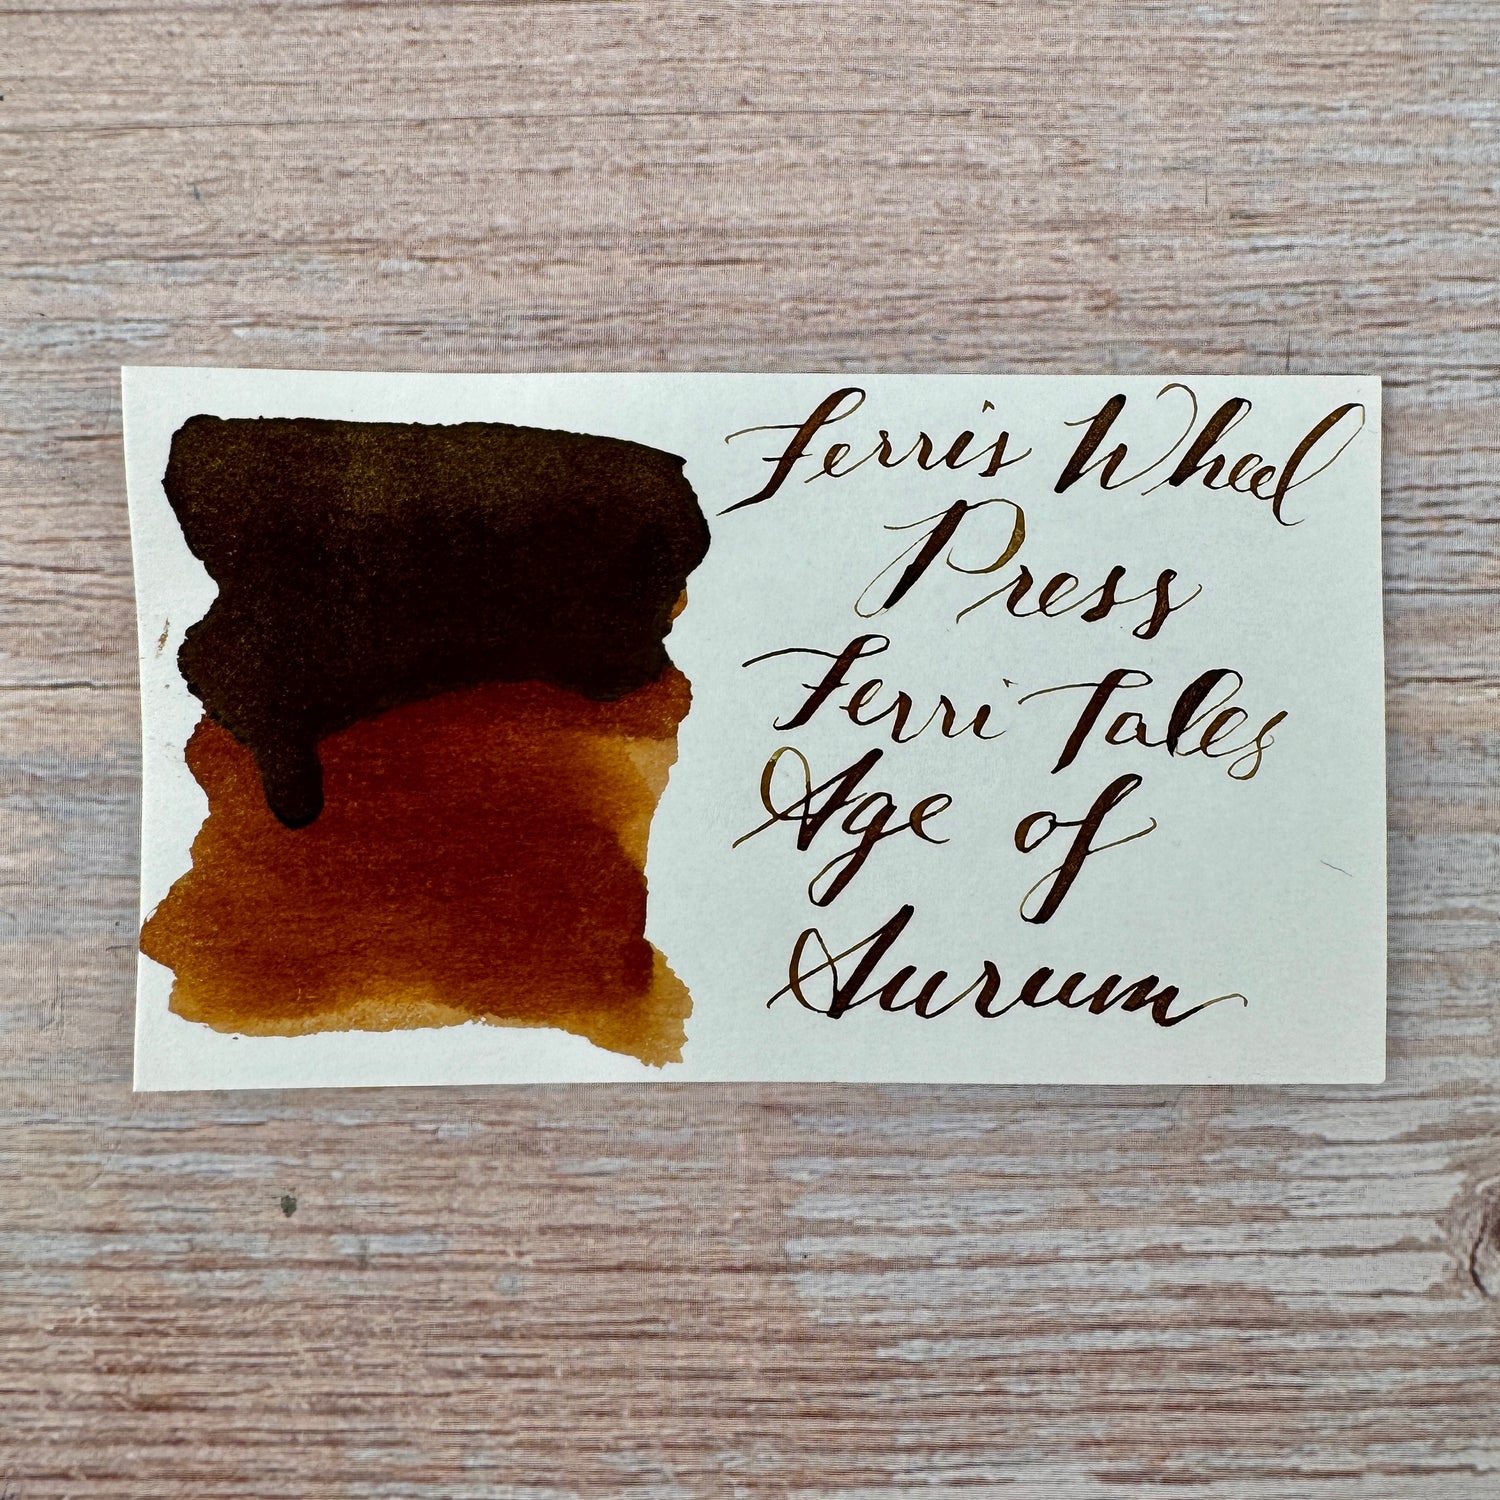 Ferris Wheel
Press
Ferri Tales
Age of
Aurum